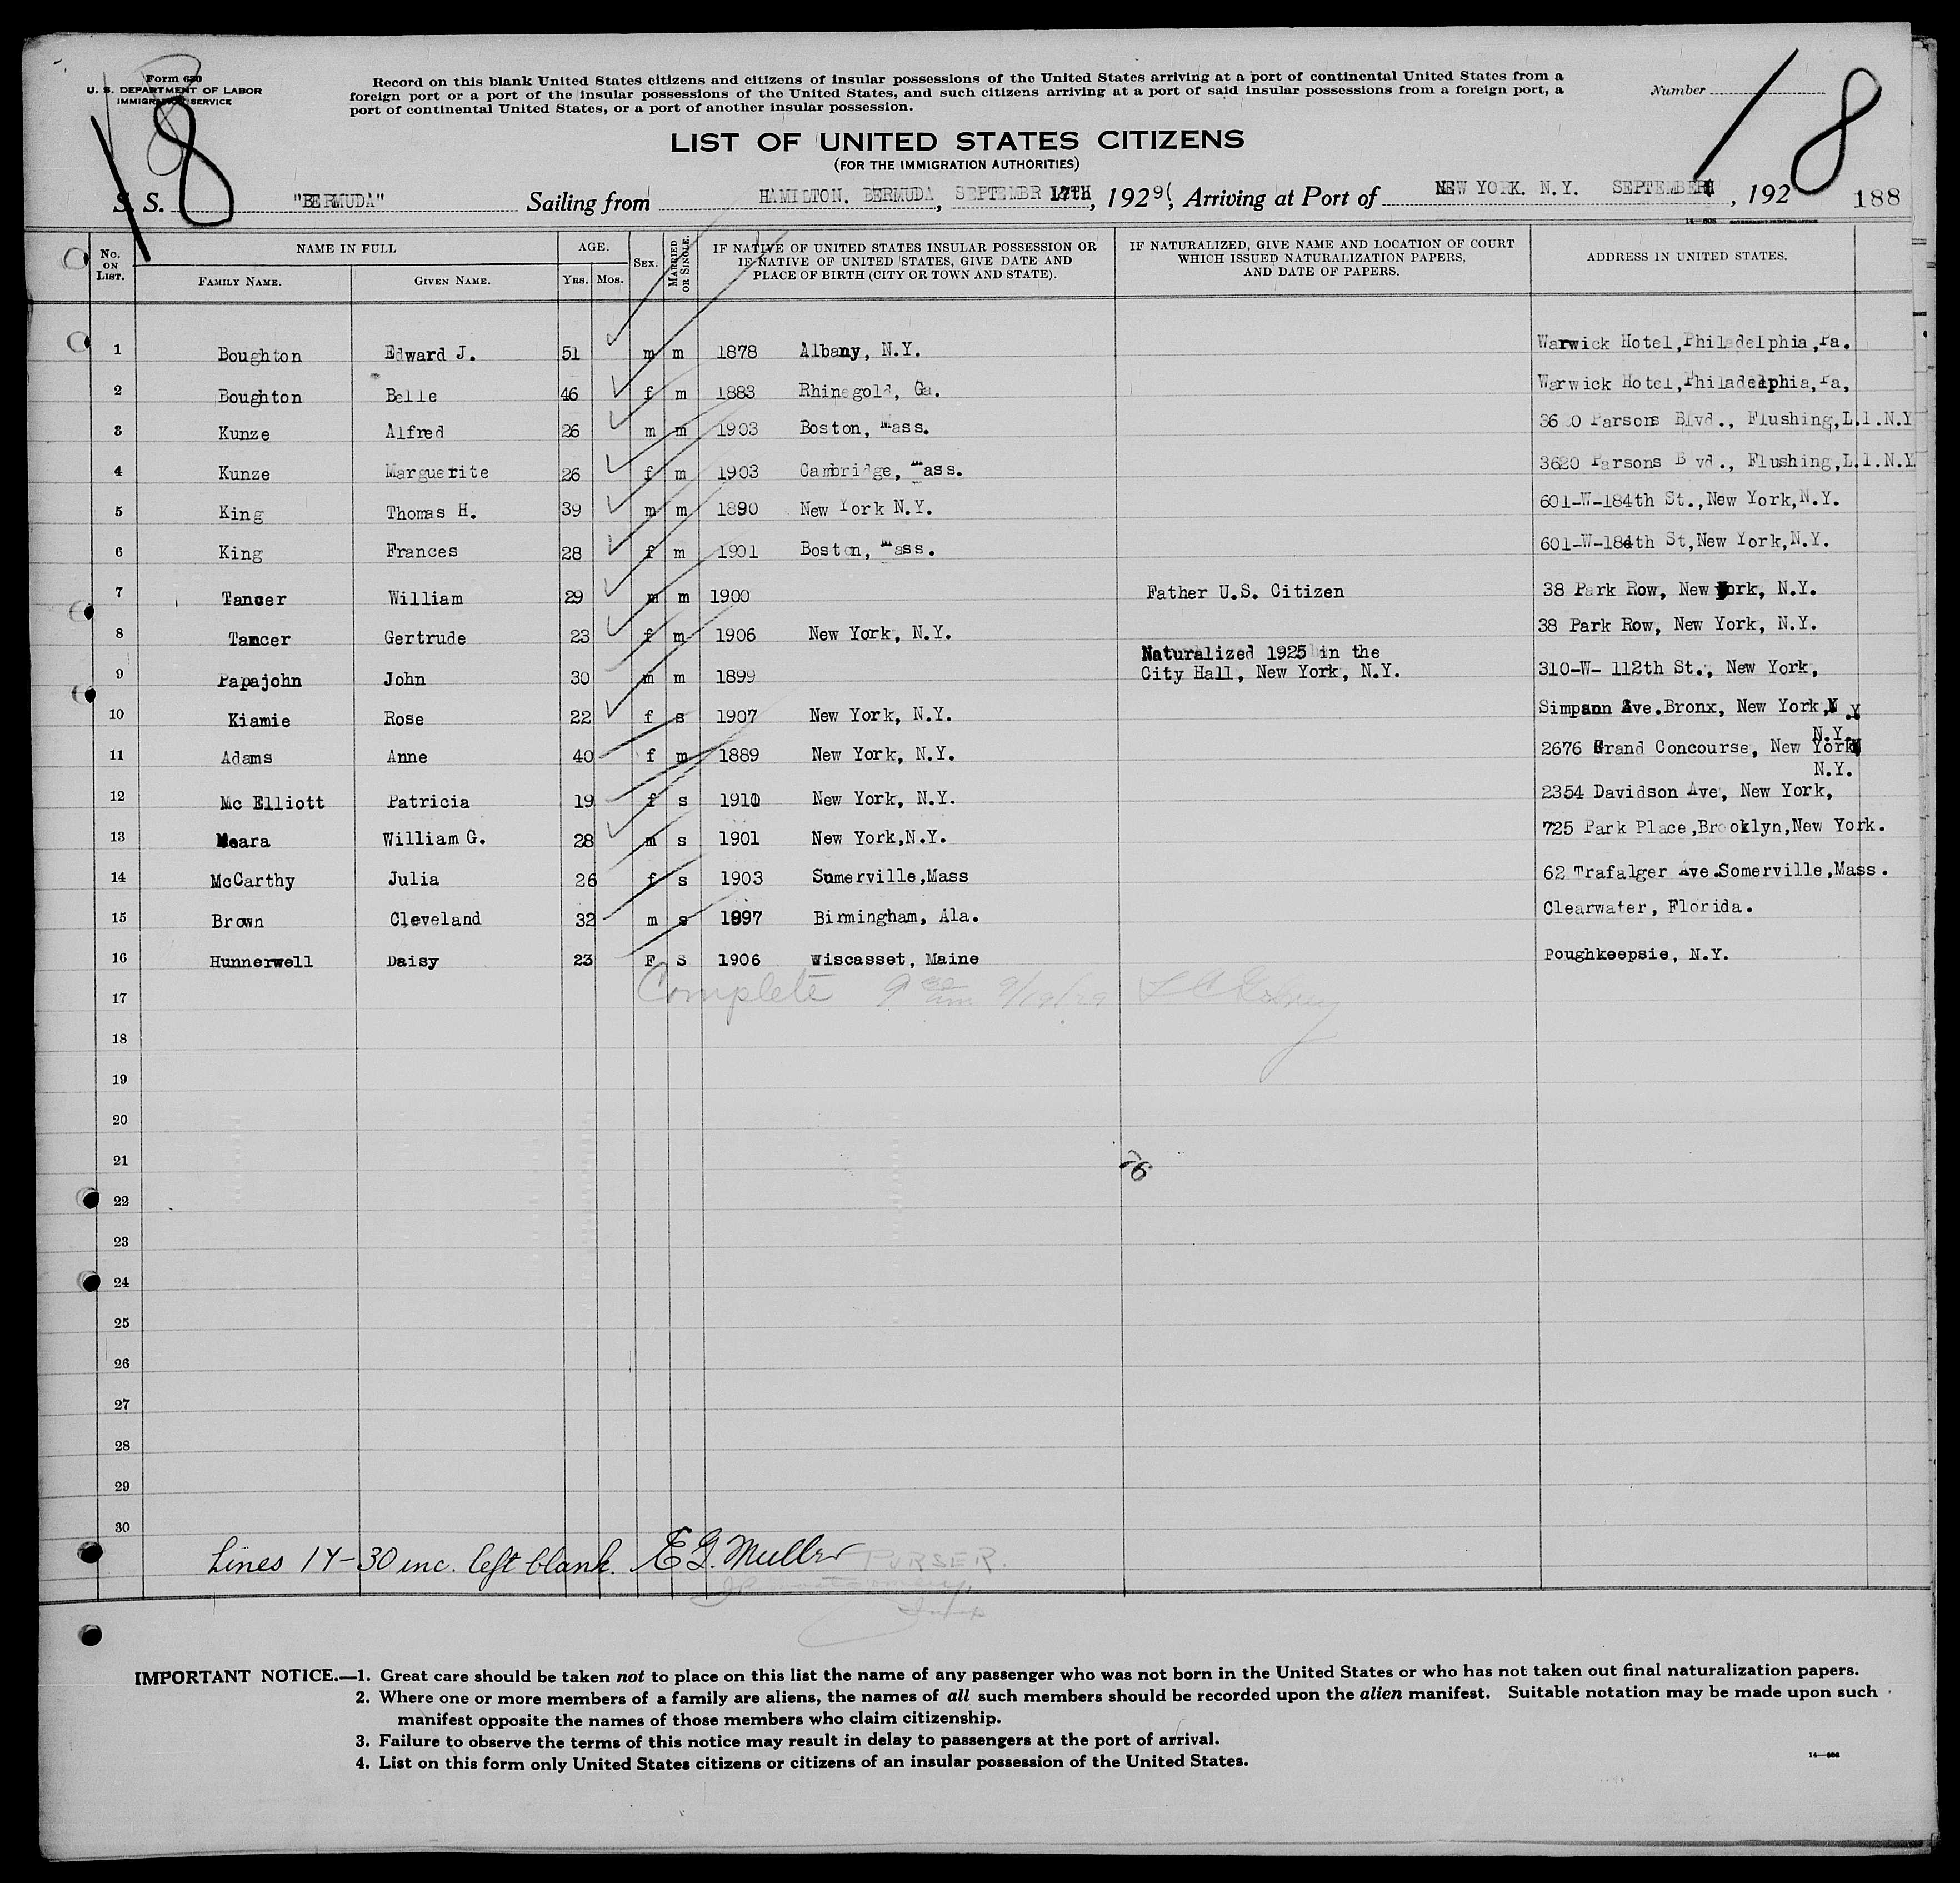 Form 630
U. S. DEPARTMENT OF LABOR
IMMIGRATION SERVICE
Record on this blank United States citizens and citizens of insular possessions of the United States arriving at a port of continental United States from a
foreign port or a port of the insular possessions of the United States, and such citizens arriving at a port of said insular possessions from a foreign port, a
port of continental United States, or a port of another insular possession.
Number
18
18
LIST OF UNITED STATES CITIZENS
(FOR THE IMMIGRATION AUTHORITIES)
S. S. "BERMUDA" Sailing from HAMILTON. BERMUDA, SEPTEMBR 17TH, 1929, Arriving at Port of NEW YORK. N.Y. SEPTEMBER, 192 188
No. ON LIST. NAME IN FULL FAMILY NAME. GIVEN NAME. AGE. YRS. MOS. SEX. MARRIED OR SINGLE. IF NATIVE OF UNITED STATES INSULAR POSSESSION OR IF NATIVE OF UNITED STATES, GIVE DATE AND PLACE OF BIRTH (CITY OR TOWN AND STATE). IF NATURALIZED, GIVE NAME AND LOCATION OF COURT WHICH ISSUED NATURALIZATION PAPERS, AND DATE OF PAPERS. ADDRESS IN UNITED STATES.
1 Boughton Edward J. 51 m m 1878 Albany, N.Y. Warwick Hotel,Philadelphia,Pa.
2 Boughton Belle 46 f m 1883 Rhinegold, Ga. Warwick Hotel,Philadelphia,Pa,
3 Kunze Alfred 26 m m 1903 Boston, Mass. 36 0 Parsons Blvd., Flushing,L.I.N.Y
4 Kunze Marguerite 26 f m 1903 Cambridge, Mass. 3620 Parsons B vd., Flushing,L.I.N.Y.
5 King Thomas H. 39 m m 1890 New York N.Y. 601-W-184th St.,New York,N.Y.
6 King Frances 28 f m 1901 Boston, Mass. 601-W-184th St,New York,N.Y.
7 Tancer William 29 m m 1900 Father U.S. Citizen 38 Park Row, New York, N.Y.
8 Tancer Gertrude 23 f m 1906 New York, N.Y. 38 Park Row, New York, N.Y.
Naturalized 1925 in the
9 Papajohn John 30 m m 1899 City Hall, New York, N.Y. 310-W- 112th St., New York,
10 Kiamie Rose 22 f s 1907 New York, N.Y. Simpson Ave.Bronx, New York,N.Y
N.Y.
11 Adams Anne 40 f m 1889 New York, N.Y. 2676 Grand Concourse, New York
N.Y.
12 Mc Elliott Patricia 19 f s 1910 New York, N.Y. 2354 Davidson Ave, New York,
13 Meara William G. 28 m s 1901 New York,N.Y. 725 Park Place,Brooklyn,New York.
14 McCarthy Julia 26 f s 1903 Sumerville,Mass 62 Trafalger Ave.Somerville,Mass.
15 Brown Cleveland 32 m s 1897 Birmingham, Ala. Clearwater, Florida.
16 Hunnerwell Daisy 23 F S 1906 Wiscasset, Maine Poughkeepsie, N.Y.
Complete 9 30 am 9/19/29
17
18
19
20
21
22
23
24
25
26
27
28
29
30
Lines 17-30 inc. left blank. E G. Muller PURSER.
IMPORTANT NOTICE.—1. Great care should be taken not to place on this list the name of any passenger who was not born in the United States or who has not taken out final naturalization papers.
2. Where one or more members of a family are aliens, the names of all such members should be recorded upon the alien manifest. Suitable notation may be made upon such
manifest opposite the names of those members who claim citizenship.
3. Failure to observe the terms of this notice may result in delay to passengers at the port of arrival.
4. List on this form only United States citizens or citizens of an insular possession of the United States.